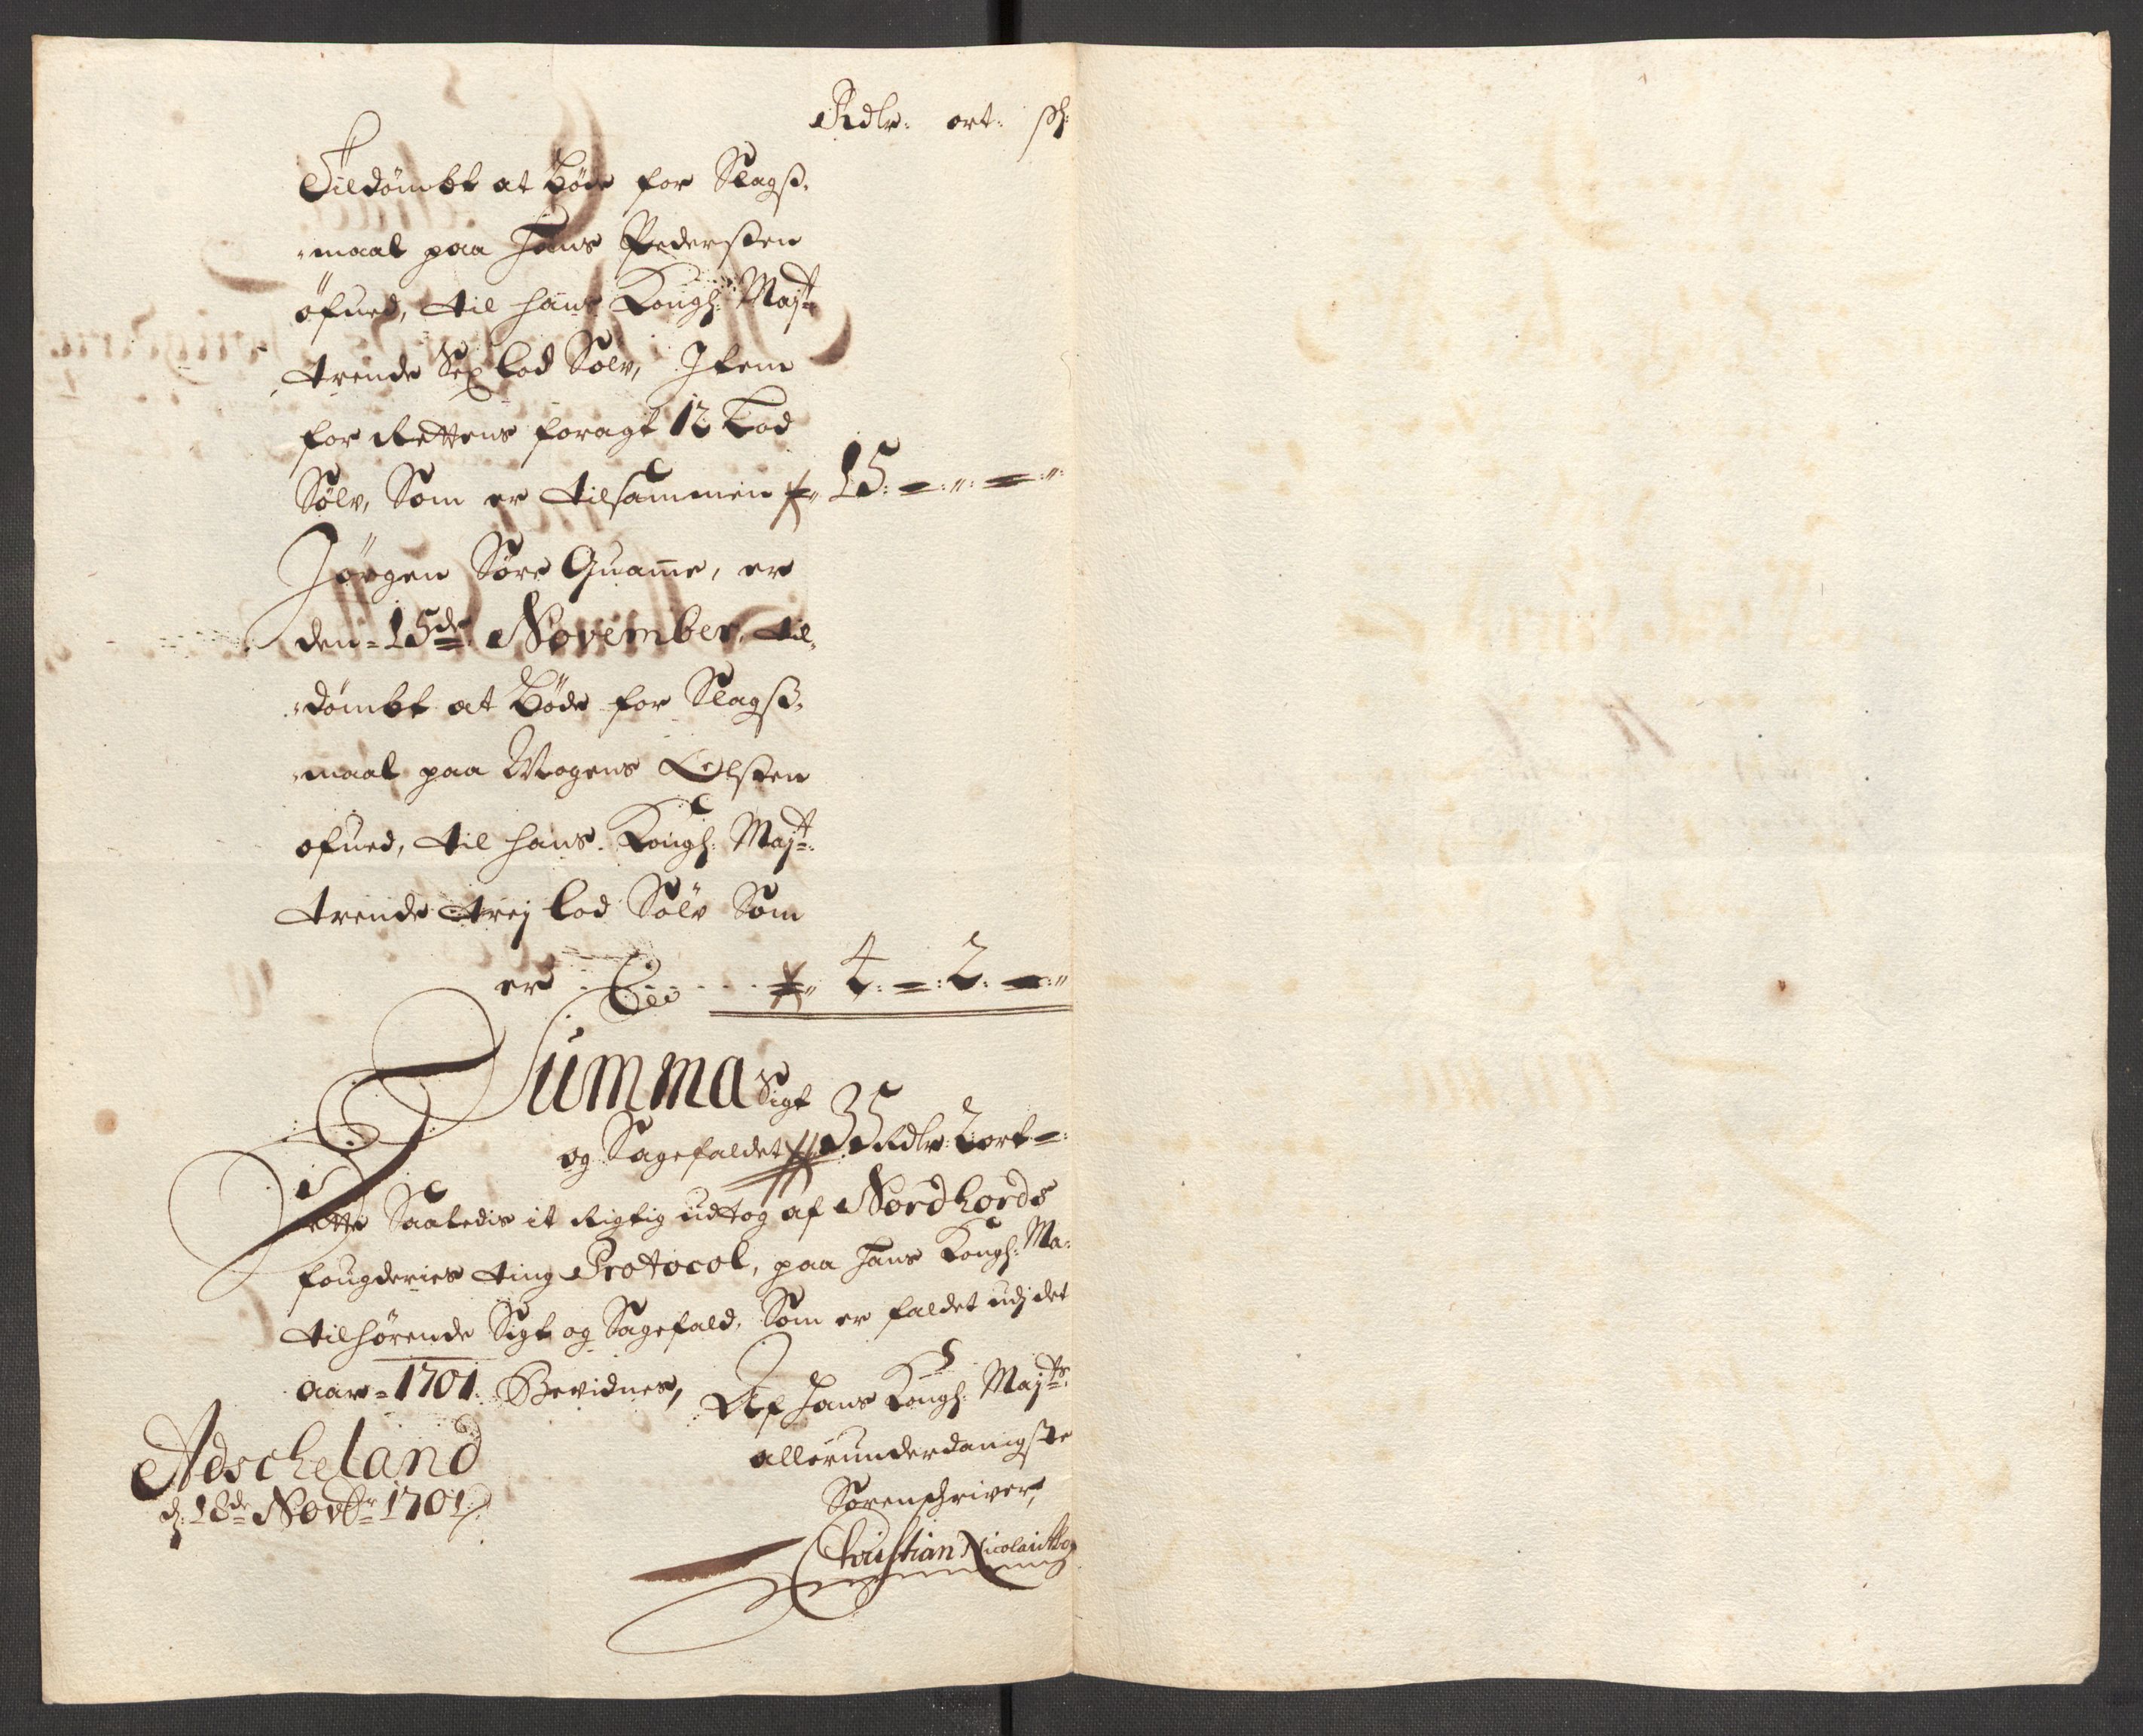 Rdlr: ort: sh:
Tildömbt at Böde for Slagß-
maal paa Hans Pedersßen
öfued, til hans Kongl: Majt:
trende Sex lod Sölv, Item
for Rettens foragt 12 Lod
Sölv, Som er tilsammen 15:
Jörgen Söre Quame, er
den 15de November, til-
dömbt at Böde for Slagß-
maal paa Mogens Olßen
öfued, til hans Kongl: Majt:
trende trej lod Sölv Som
er 4: 2:
Summa Sigt
og Sagefaldet 35 Rdlr: 2 ort
Dette Saaledis it Rigtig udtog af Nordhords
fougderies ting Protocol, paa Hans Kongl: Ma:
tilhörende Sigt og Sagefald, Som er faldet udj det
aar 1701. Bevidnes,
Af Hans Kongl: Majts:
allerunderdanigste
Sorenschriver,
Christian Nicolai
Adscheland
d: 18de Novbr 1701